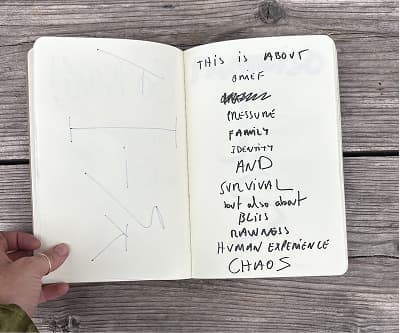 THIS IS ABOUT
GRIEF
PRESSURE
FAMILY
IDENTITY
AND
SURVIVAL
but also about
BLISS
RAWNESS
HUMAN EXPERIENCE
CHAOS